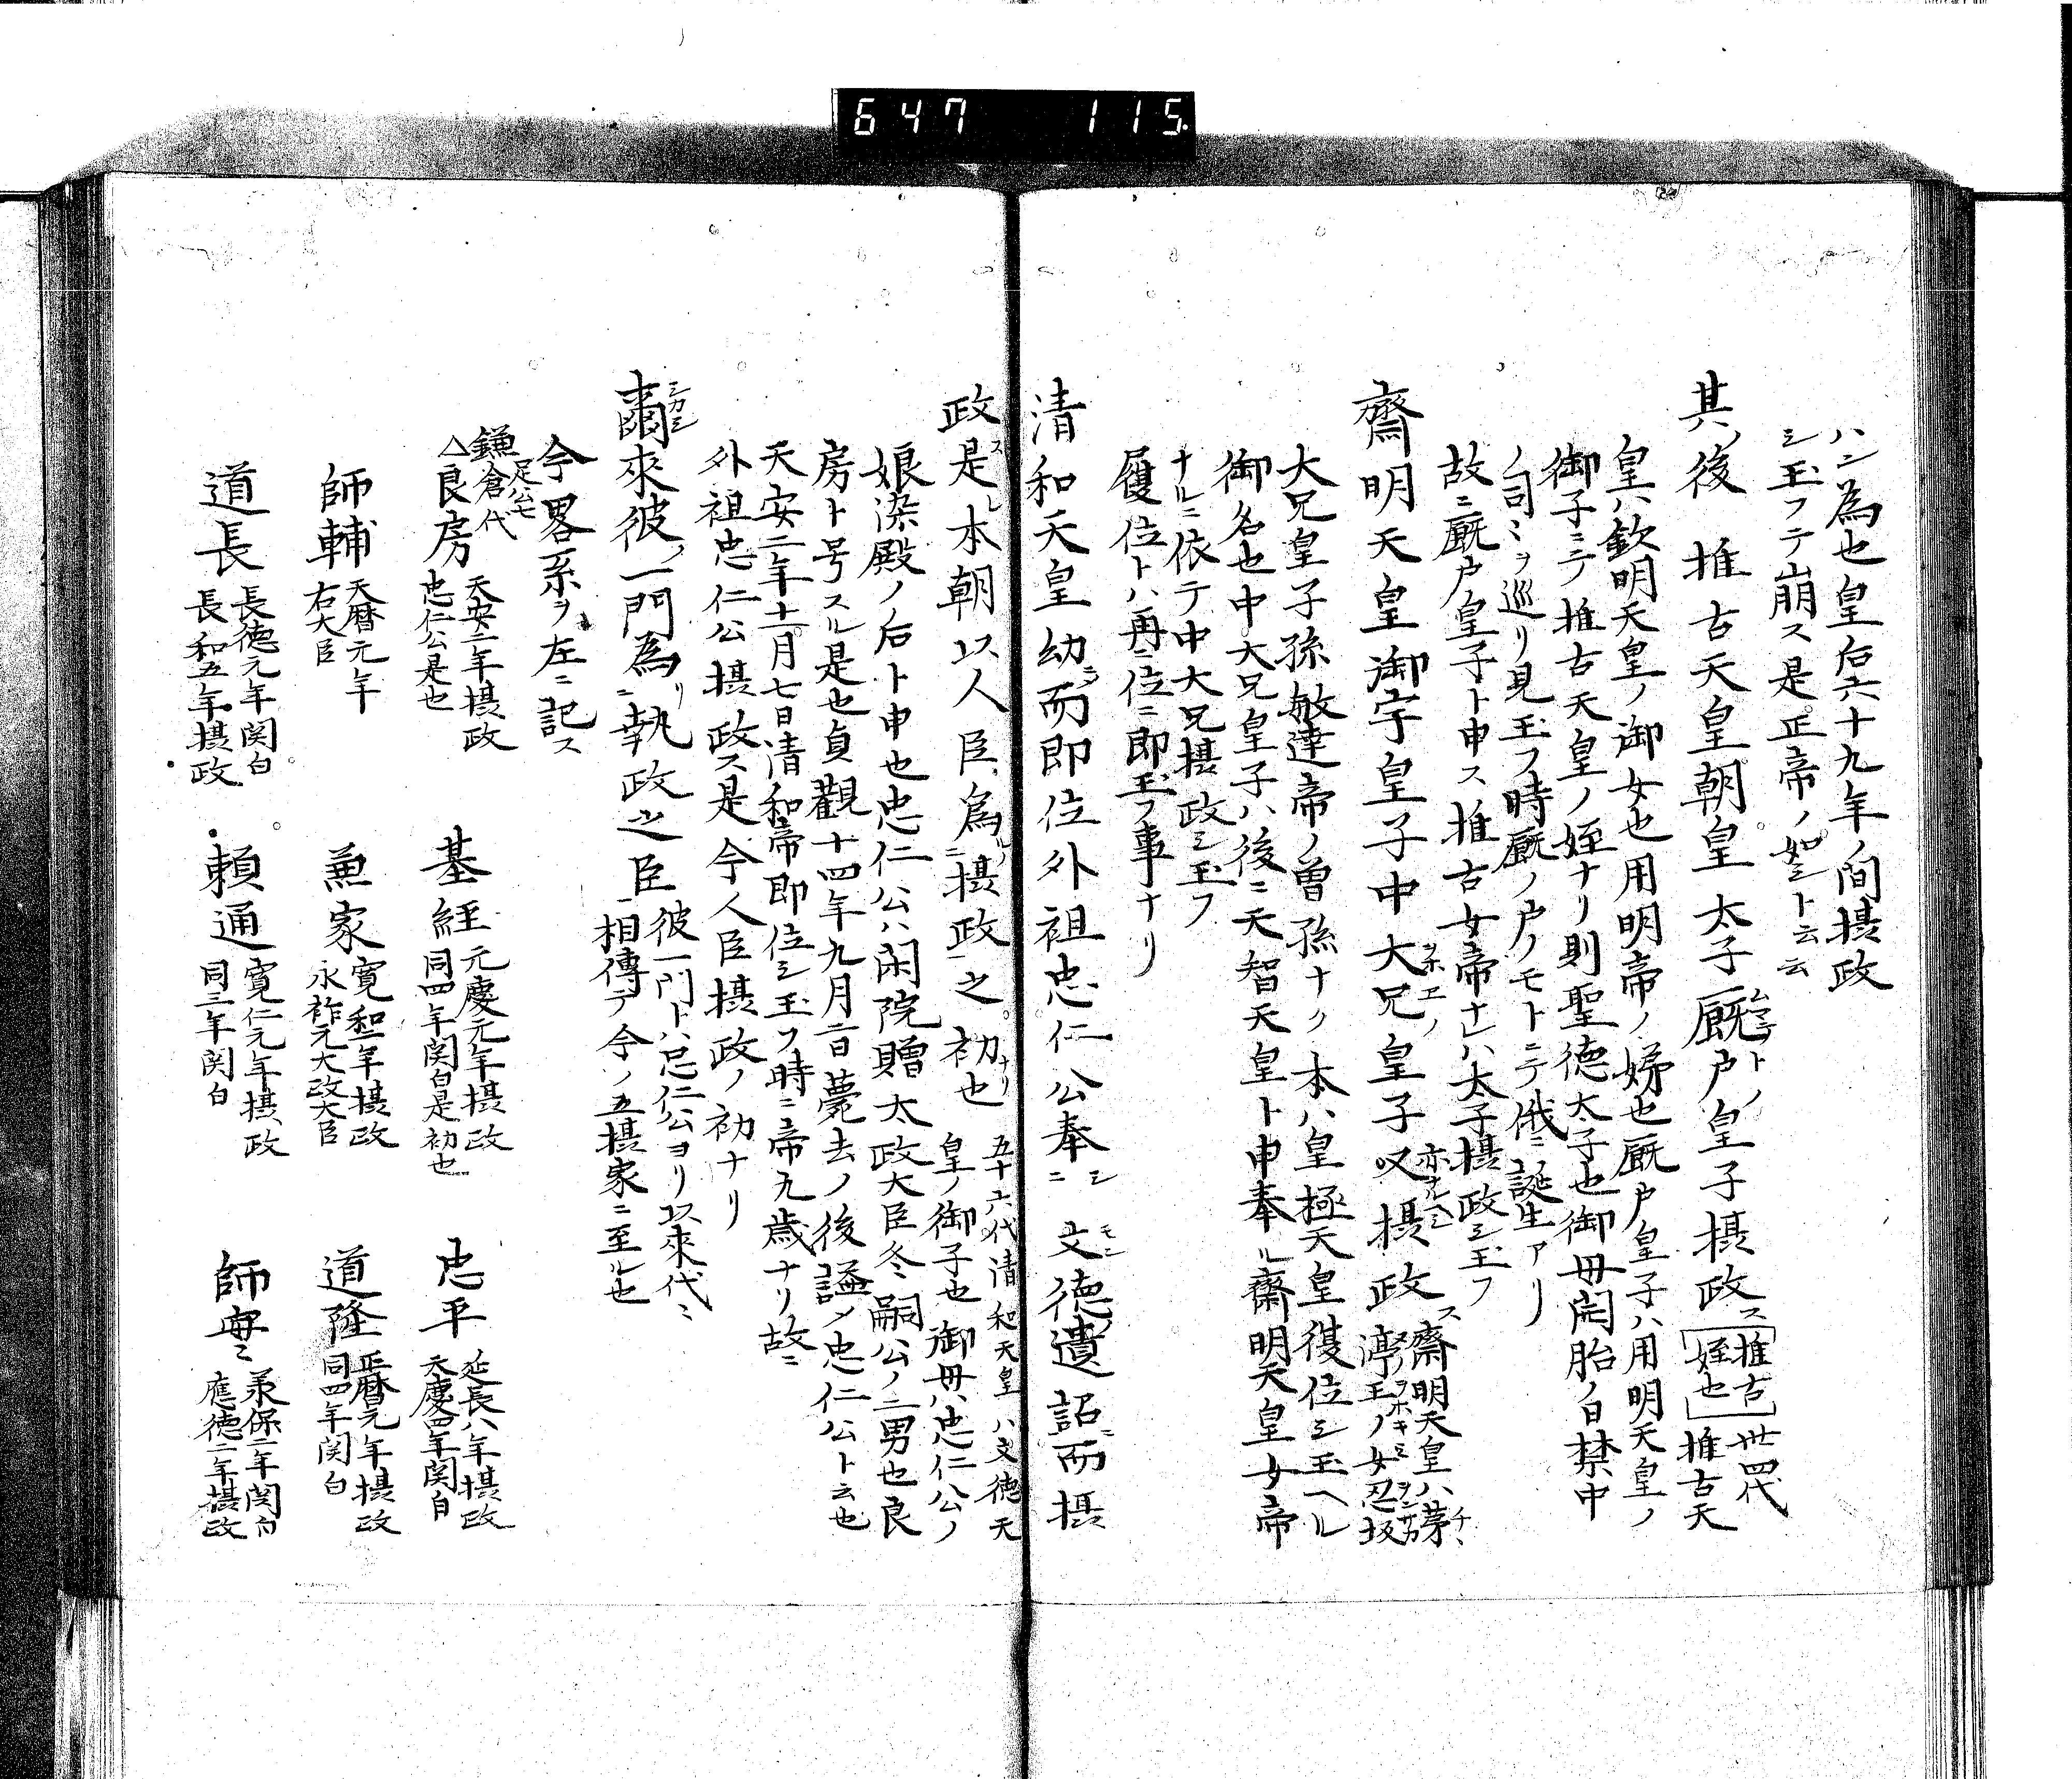 647 115
ハン為也皇后六十九年ノ間摂政
シ玉フテ崩ス是正帝ノ如シト云云
其後推古天皇朝皇太子厩戸皇子摂政ス
推古
姪也
丗四代
推古天
皇ハ欽明天皇ノ御女也用明帝ノ娣也厩戸皇子ハ用明天皇ノ
御子ニテ推古天皇ノ姪ナリ則聖徳太子也御母開胎ノ日禁中
ノ司ミヲ巡リ見玉フ時厩ノ戸ノモトニテ俄ニ誕生アリ
故ニ厩戸皇子ト申ス推古女帝ナレハ太子摂政シ玉フ
齋明天皇御宇皇子中大兄皇子又摂政ス
齋明天皇ハ茅
渟王ノ女忍坂
大兄皇子孫敏達帝ノ曽孫ナリ本ハ皇極天皇復位シ玉ヘル
御名也中大兄皇子ハ後ニ天智天皇ト申奉ル齋明天皇女帝
ナルニ依テ中大兄摂政シ玉フ
履位トハ再ヒ位ニ即玉フ事ナリ
清和天皇幼而即位外祖忠仁公奉文徳遺詔而摂
政是本朝以人臣為摂政之初也
五十六代清和天皇ハ文徳天
皇ノ御子也御母ハ忠仁公ノ
娘染殿ノ后ト申也忠仁公ハ閑院贈太政大臣冬嗣公ノ二男也良
房ト号スル是也貞觀十四年九月二日薨去ノ後諡ノ忠仁公ト云也
天安二年十一月七日清和帝即位シ玉フ時ニ帝九歳ナリ故ニ
外祖忠仁公摂政ス是今人臣摂政ノ初ナリ
爾來彼一門為執政之臣
彼一門トハ忠仁公ヨリ以來代ミ
相傳テ今ノ五摂家ニ至ル也
今畧系ヲ左ニ記ス
鎌倉代
足公モ
△良房
天安二年摂政
忠仁公是也
基経
元慶元年摂政
同四年関白是初也
忠平
延長八年摂政
天慶四年関白
師輔
天暦元年
右大臣
兼家
寛和二年摂政
永祚元大政大臣
道隆
正暦元年摂政
同四年関白
道長
長徳元年関白
長和五年摂政
頼通
寛仁元年摂政
同三年関白
師実
承保二年関白
應徳二年摂政